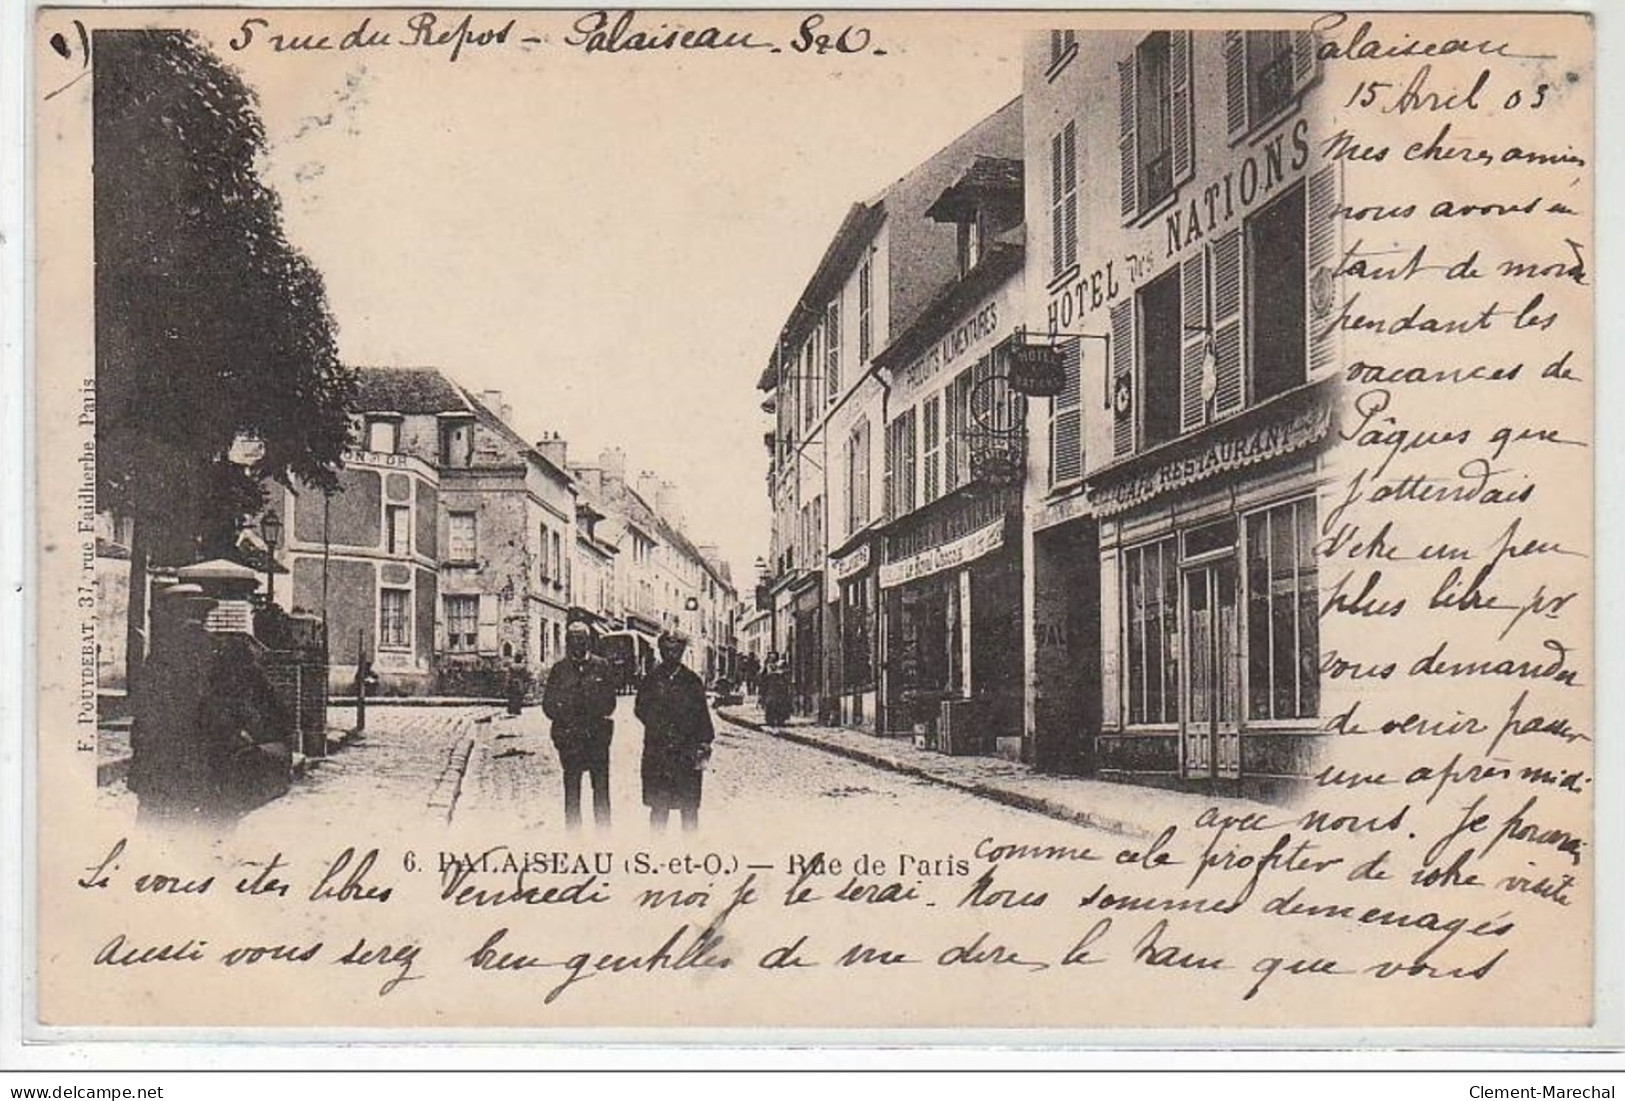 1)
5 rue du Repos - Palaiseau. S&O.
Palaiseau
15 Avril 03
Mes chères amies
nous avons eu
tant de monde
pendant les
vacances de
Pâques que
j'attendais
d'etre un peu
plus libre pr
vous demander
de venir passer
une après midi
avec nous. Je pourrai
comme cela profiter de votre visite
Si vous êtes libres Vendredi moi je le serai. Nous sommes demenagés
aussi vous serez bien gentilles de me dire le train que vous
6. PALAISEAU (S.-et-O.) — Rue de Paris
F. POUYDEBAT, 37, rue Faidherbe, Paris
HÔTEL DES NATIONS
HOTEL
DES
NATIONS
PRODUITS ALIMENTAIRES
CAFÉ RESTAURANT
BAL
ON D'OR
delcampe.net
Clement-Marechal